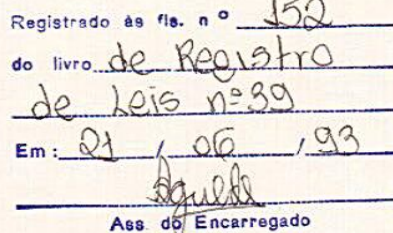 Registrado às fls. nº 152
do livro de Registro
de Leis nº 39
Em: 21 / 06 / 93
Ass. do Encarregado